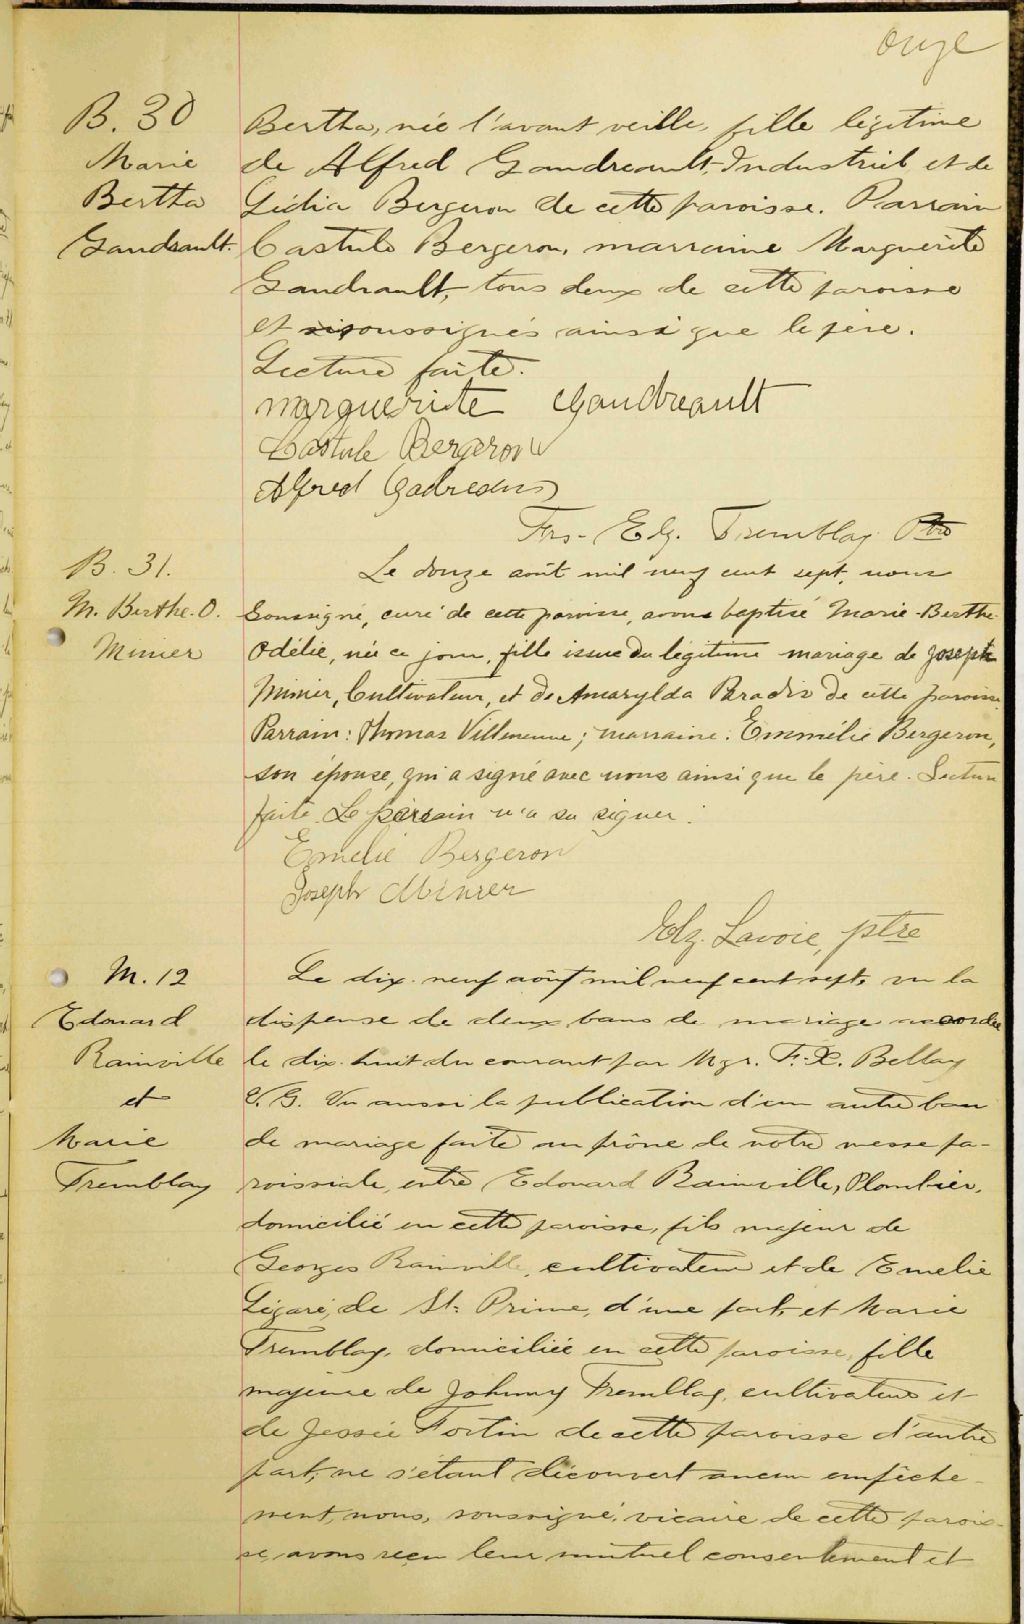 onze
B. 30
Marie
Bertha
Gaudreault.
Bertha, née l'avant veille, fille légitime
de Alfred Gaudreault, Industriel et de
Lédia Bergeron de cette paroisse. Parrain
Castule Bergeron, marraine Marguerite
Gaudreault, tous deux de cette paroisse
et soussignés ainsi que le père.
Lecture faite.
Marguerite Gaudreault
Castule Bergeron
Alfred
Frs-Elz. Tremblay Ptre
B. 31.
M. Berthe-O.
Minier
Le douze août mil neuf cent sept, nous
soussigné, curé de cette paroisse, avons baptisé Marie-Berthe-
Odélie, née ce jour, fille issue du légitime mariage de Joseph
Minier, Cultivateur, et de Amarylda Paradis de cette paroisse.
Parrain: Thomas Villeneuve; marraine: Emmélie Bergeron,
son épouse, qui a signé avec nous ainsi que le père. Lecture
faite. Le parrain n'a su signer.
Emelie Bergeron
Joseph Minier
Elz. Lavoie, ptre
M. 12
Edouard
Rainville
et
Marie
Tremblay
Le dix-neuf août mil neuf cent sept, vu la
dispense de deux bans de mariage accordée
le dix-huit du courant par Mgr. F. X. Belley
V. G. Vu aussi la publication d'un autre ban
de mariage faite au prône de notre messe pa-
roissiale, entre Edouard Rainville, Plombier,
domicilié en cette paroisse, fils majeur de
Georges Rainville, cultivateur et de Emelie
Légaré, de St. Prime, d'une part, et Marie
Tremblay, domiciliée en cette paroisse, fille
majeure de Johnny Tremblay, cultivateur et
de Jessée Fortin de cette paroisse d'autre
part, ne s'étant découvert aucun empêche-
ment, nous, soussigné, vicaire de cette parois-
se, avons reçu leur mutuel consentement et